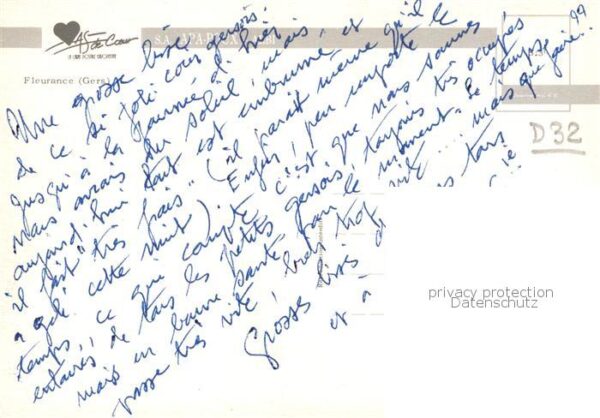 AS de Coeur
Fleurance (Gers)
Une grosse bise
de ce si joli coin gersois.
Jusqu'à la journée d'hier
nous avons du soleil mais
aujourd'hui tout est embrumé et
il fait "très frais" (il paraît même qu'il
a gelé cette nuit). Enfin, peu importe le
temps, ce qui compte c'est que nous sommes
entourés de tous les petits gersois, toujours très occupés
mais en bonne santé pour le moment. Le temps
passe très vite, trop vite ... mais que faire ??
Grosses bises de tous
et à
D32
privacy protection
Datenschutz